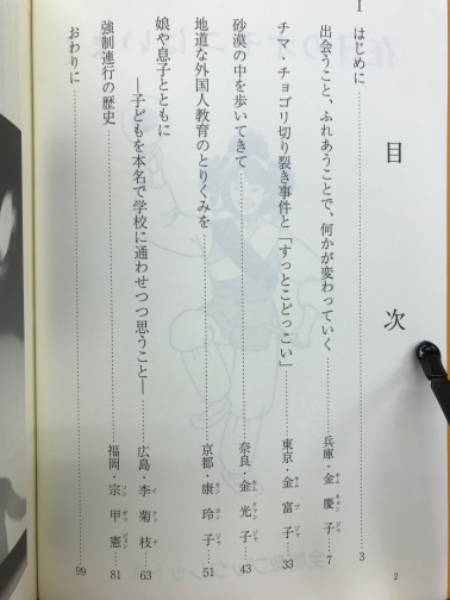 目次
Ⅰ
はじめに……3
出会うこと、ふれあうことで、何かが変わっていく……兵庫・金慶子 キム キョン ジャ 7
チマ・チョゴリ切り裂き事件と「すっとこどっこい」……東京・金富子 キム プ ジャ 33
砂漠の中を歩いてきて……奈良・金光子 キム クァン ジャ 43
地道な外国人教育のとりくみを……京都・康玲子 カン ヨン ジャ 51
娘や息子とともに
―子どもを本名で学校に通わせつつ思うこと―……広島・李菊枝 イ クッ チ 63
強制連行の歴史……福岡・宗甲憲 ソン ガッ ジョン 81
おわりに……99
2